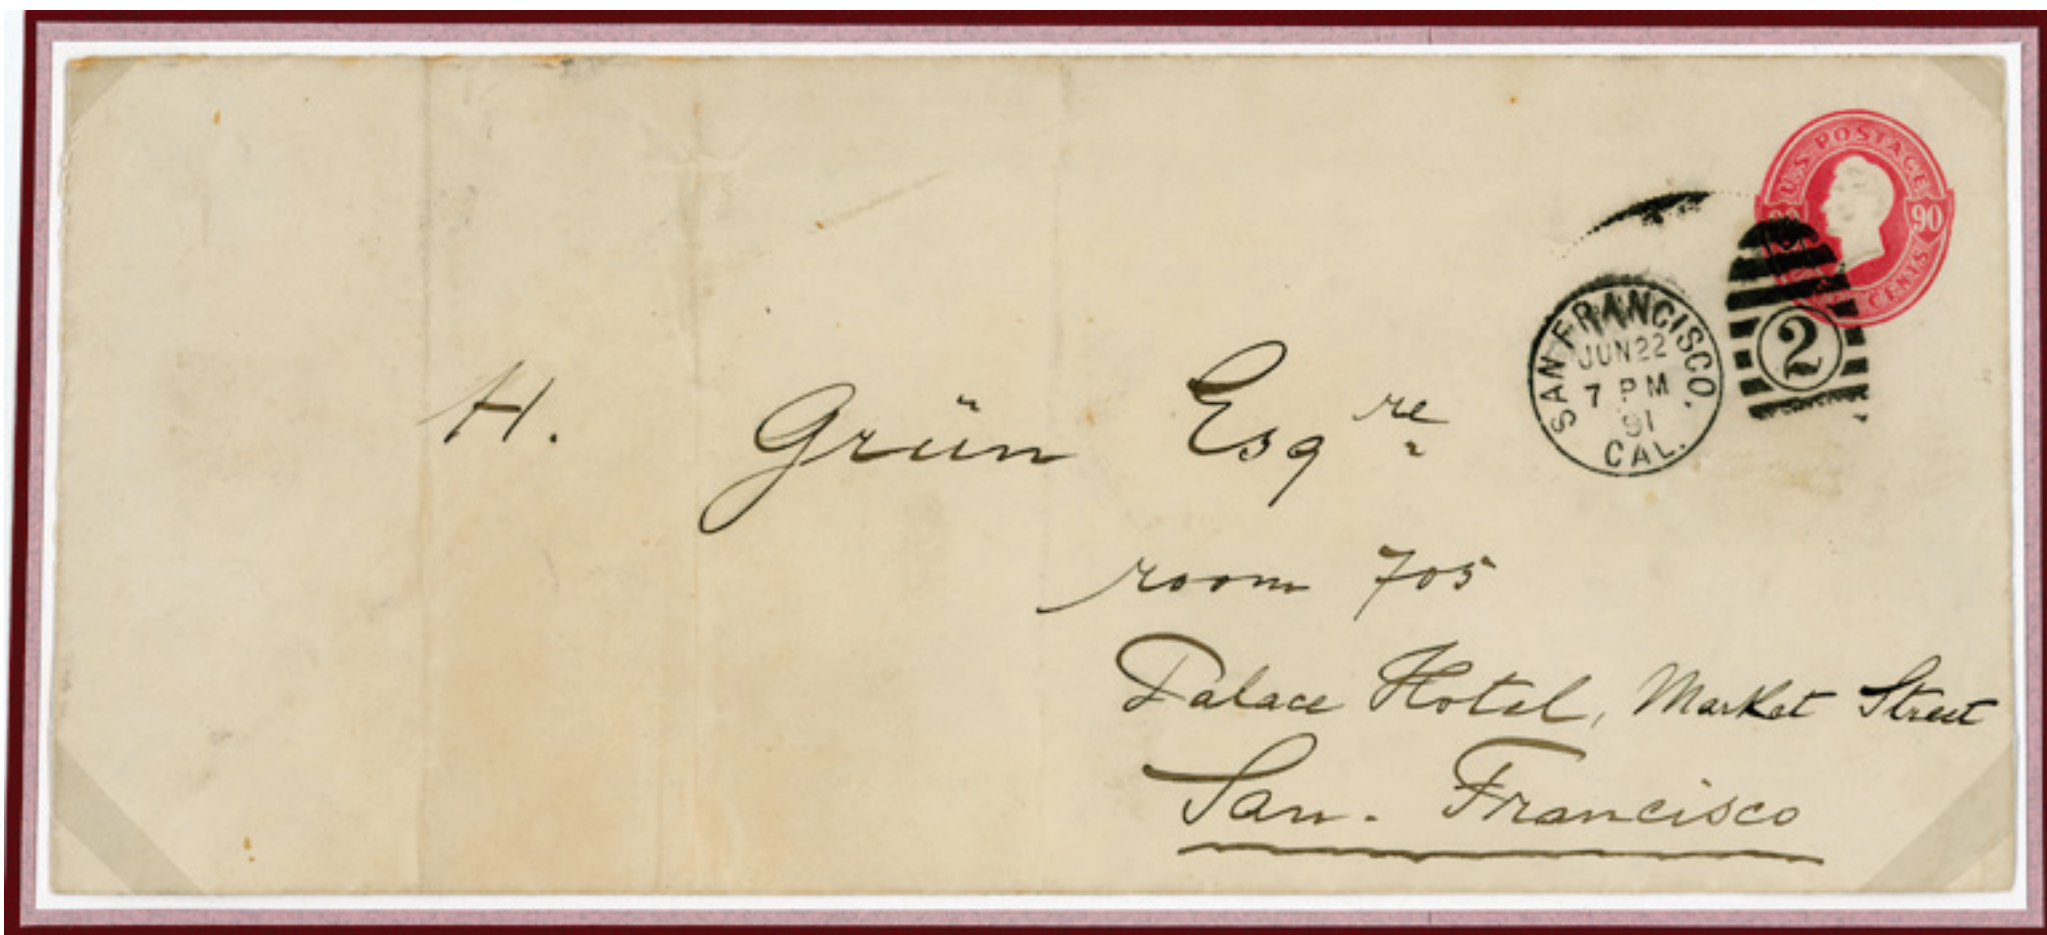 U.S. POSTAGE
90
CENTS
SAN FRANCISCO,
JUN 22
7 PM
91
CAL.
2
H. Grün Esqre
room 705
Palace Hotel, Market Street
San. Francisco